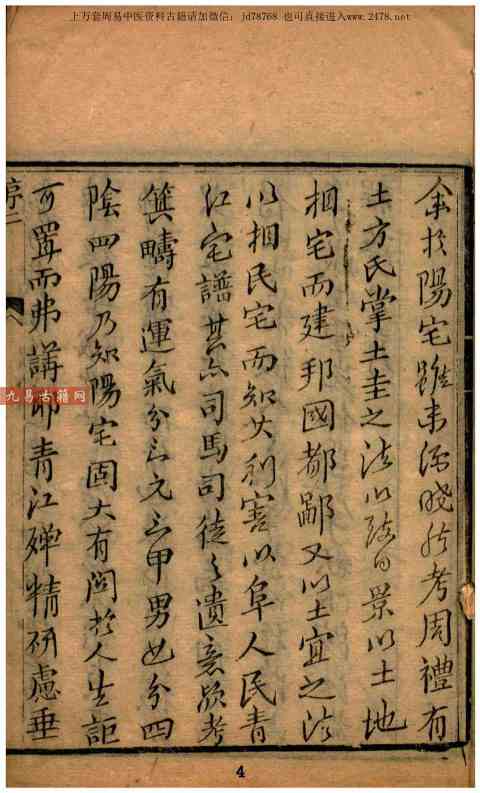 上万套周易中医资料古籍请加微信：jd78768 也可直接进入www.2478.net
余於陽宅雖未深曉然考周禮有
土方氏掌土圭之法以致日景以土地
相宅而建邦國都鄙又以土宜之法
以相民宅而知其利害以阜人民青
江宅譜其亦司馬司徒之遺意歟考
箕疇有運氣分三元三甲男女分四
陰四陽乃知陽宅固大有関於人生詎
可置而弗講耶青江殫精研慮垂
序二
九易古籍网
4